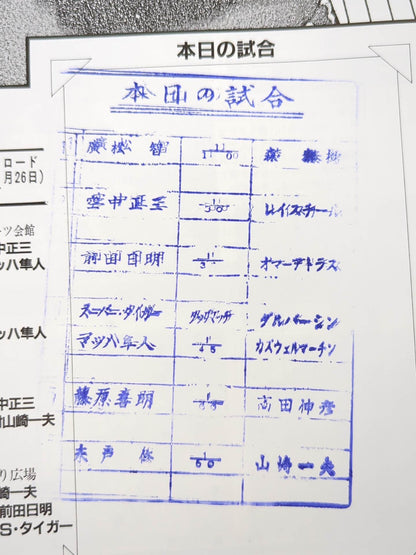 本日の試合
本日の試合
廣松智
空中正三
前田日明 オマーアトラス
スーパー・タイガー タッグマッチ
マッハ隼人 1/45 カズウェルマーチン
藤原喜明 高田伸彦
木戸修 1/60 山崎一夫
ロード
月26日)
ーツ会館
中正三
ッハ隼人
ッハ隼人
中正三
山崎一夫
り広場
崎一夫
前田日明
S・タイガー